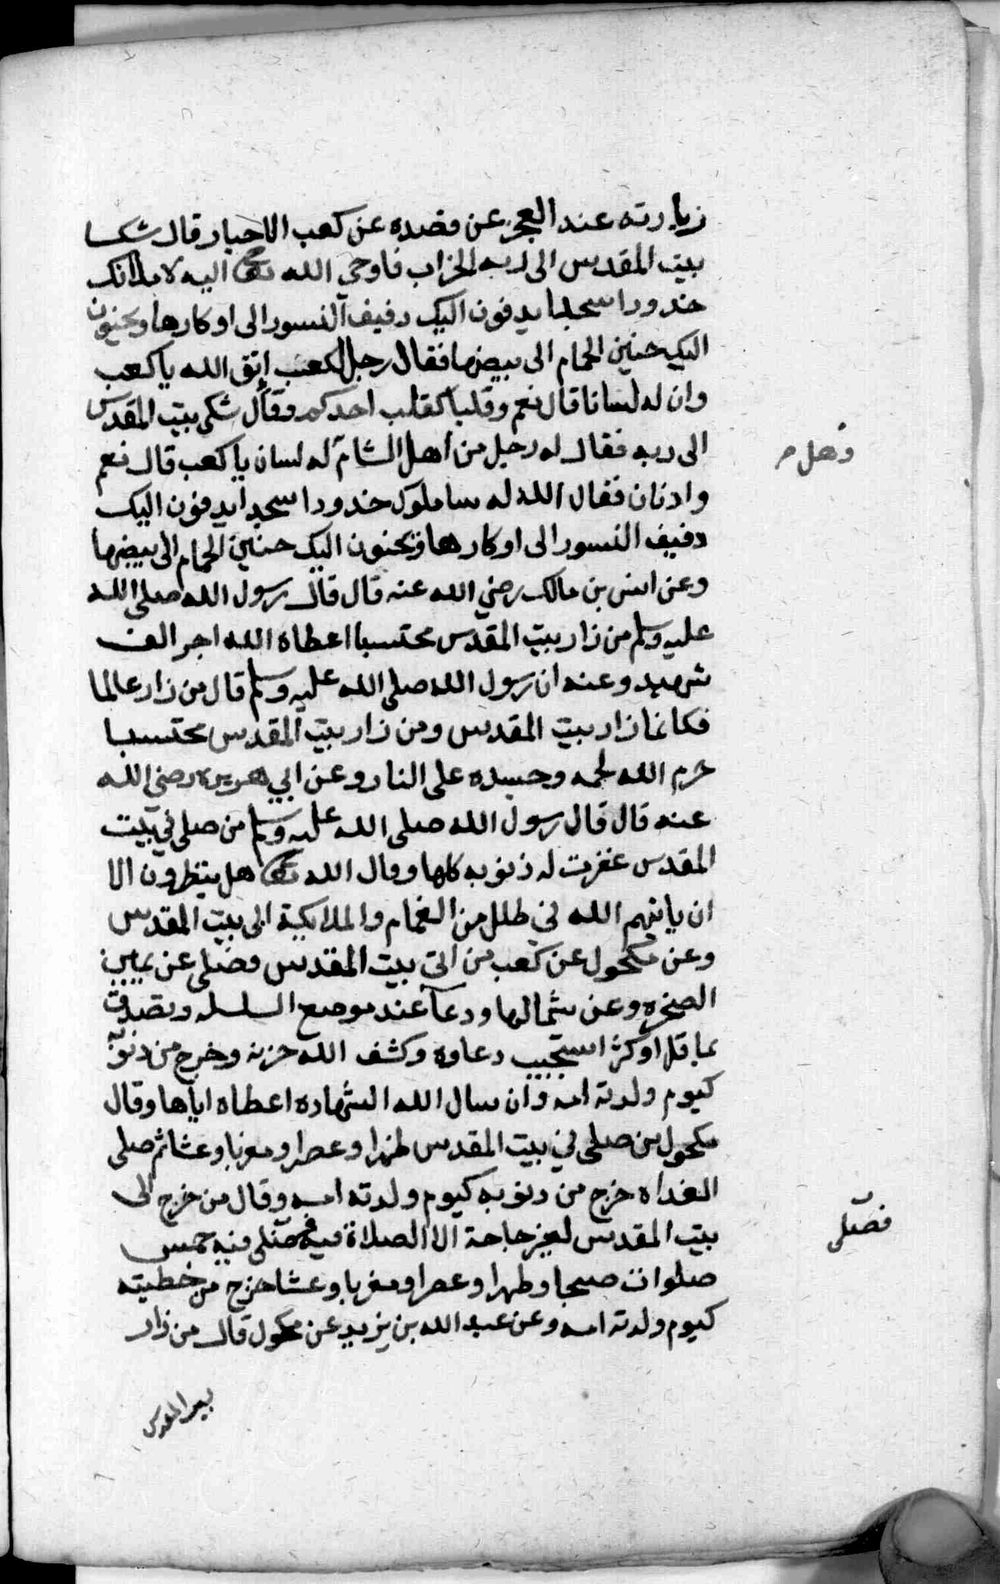 زيارته عند العجز عن قصده عن كعب الاحبار قال شكا
بيت المقدس الى ربه الخراب فاوحى الله تعالى اليه لاملانك
خدودا سجدا يدفون اليك دفيف النسور الى اوكارها ويحنون
اليك حنين الحمام الى بيضها فقال رجل لكعب إتق الله يا كعب
وان له لسانا قال نعم وقلبا كقلب احدكم وقال شكى بيت المقدس
الى ربه فقال له رجل من اهل الشام له لسان يا كعب قال نعم
وهل
واذنان فقال الله له ساملوك خدودا سجدا يدفون اليك
دفيف النسور الى اوكارها ويحنون اليك حنين الحمام الى بيضها
وعن انس بن مالك رضي الله عنه قال قال رسول الله صلى الله
عليه وسلم من زار بيت المقدس محتسبا اعطاه الله اجر الف
شهيد وعنه ان رسول الله صلى الله عليه وسلم قال من زار عالما
فكانما زار بيت المقدس ومن زار بيت المقدس محتسبا
حرم الله لحمه وجسده على النار وعن ابي هريره رضي الله
عنه قال قال رسول الله صلى الله عليه وسلم من صلى في بيت
المقدس غفرت له ذنوبه كلها وقال الله تعالى هل ينظرون الا
ان ياتيهم الله في ظلل من الغمام والملايكة الى بيت المقدس
وعن مكحول عن كعب من اتى بيت المقدس فصلى عن يمين
الصخره وعن شمالها ودعا عند موضع السلسله وتصدق
بما قل او كثر استجيب دعاوه وكشف الله حزنه وخرج من ذنوبه
كيوم ولدته امه وان سال الله الشهاده اعطاه اياها وقال
مكحول من صلى في بيت المقدس ظهرا وعصرا ومغربا وعشا ثم صلى
الغداه خرج من ذنوبه كيوم ولدته امه وقال من خرج الى
بيت المقدس لغير حاجة الا الصلاة فيه فصلى فيه خمس
فصلى
صلوات صبحا وظهرا وعصرا ومغربا وعشا خرج من خطيته
كيوم ولدته امه وعن عبد الله بن يزيد عن مكحول قال من زار
بيت المقدس